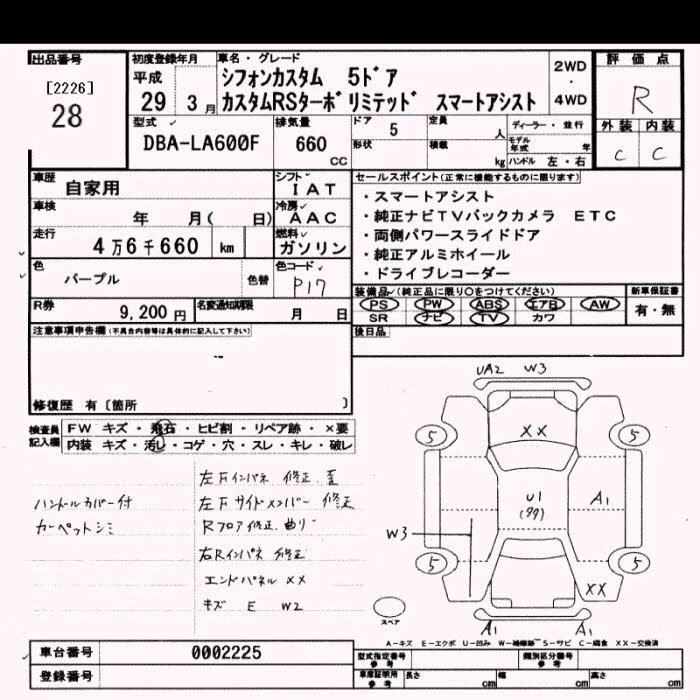 出品番号 初度登録年月 車名・グレード 2WD・4WD 評価点
[2226]
28
平成 29 3月
シフォンカスタム 5ドア
カスタムRSターボ リミテッド スマートアシスト
R
外装 内装
C C
型式 排気量 ドア 定員 ディーラー・並行
DBA-LA600F 660 cc 5 人 モデル年式 年
形状 積載 kg ハンドル 左・右
車歴 自家用 シフト IAT
セールスポイント(正常に機能するものに限ります)
・スマートアシスト
・純正ナビTVバックカメラ ETC
・両側パワースライドドア
・純正アルミホイール
・ドライブレコーダー
車検 年 月( 日) 冷房 AAC
走行 4万6千660 km 燃料 ガソリン
色 パープル 色替 色コード P17
装備品(純正品に限り○をつけてください) 新車保証書
PS PW ABS エアB AW 有・無
SR ナビ TV カワ
R券 9,200円 名変通知期限 月 日
後日品
注意事項申告欄(不具合内容等は具体的に記入して下さい)
修復歴 有〔箇所 〕
検査員記入欄
FW キズ・飛石・ヒビ割・リペア跡・×要
内装 キズ・汚レ・コゲ・穴・スレ・キレ・破レ
ハンドルカバー付
カーペットシミ
左Fインパネ 修正 歪
左Fサイドメンバー 修正
Rフロア修正 曲り
右Rインパネ 修正
エンドパネル XX
キズ E W2
UA2 W3
5 XX 5
U1
A1
W3
5 5
XX
スペア A1 A1
A-キズ E-エクボ U-凹み W-補修跡 S-サビ C-腐食 XX-交換済
車台番号 0002225
登録番号
型式指定番号 参考 類別区分番号 参考
車庫証明用 参考 長さ cm 幅 cm 高さ cm